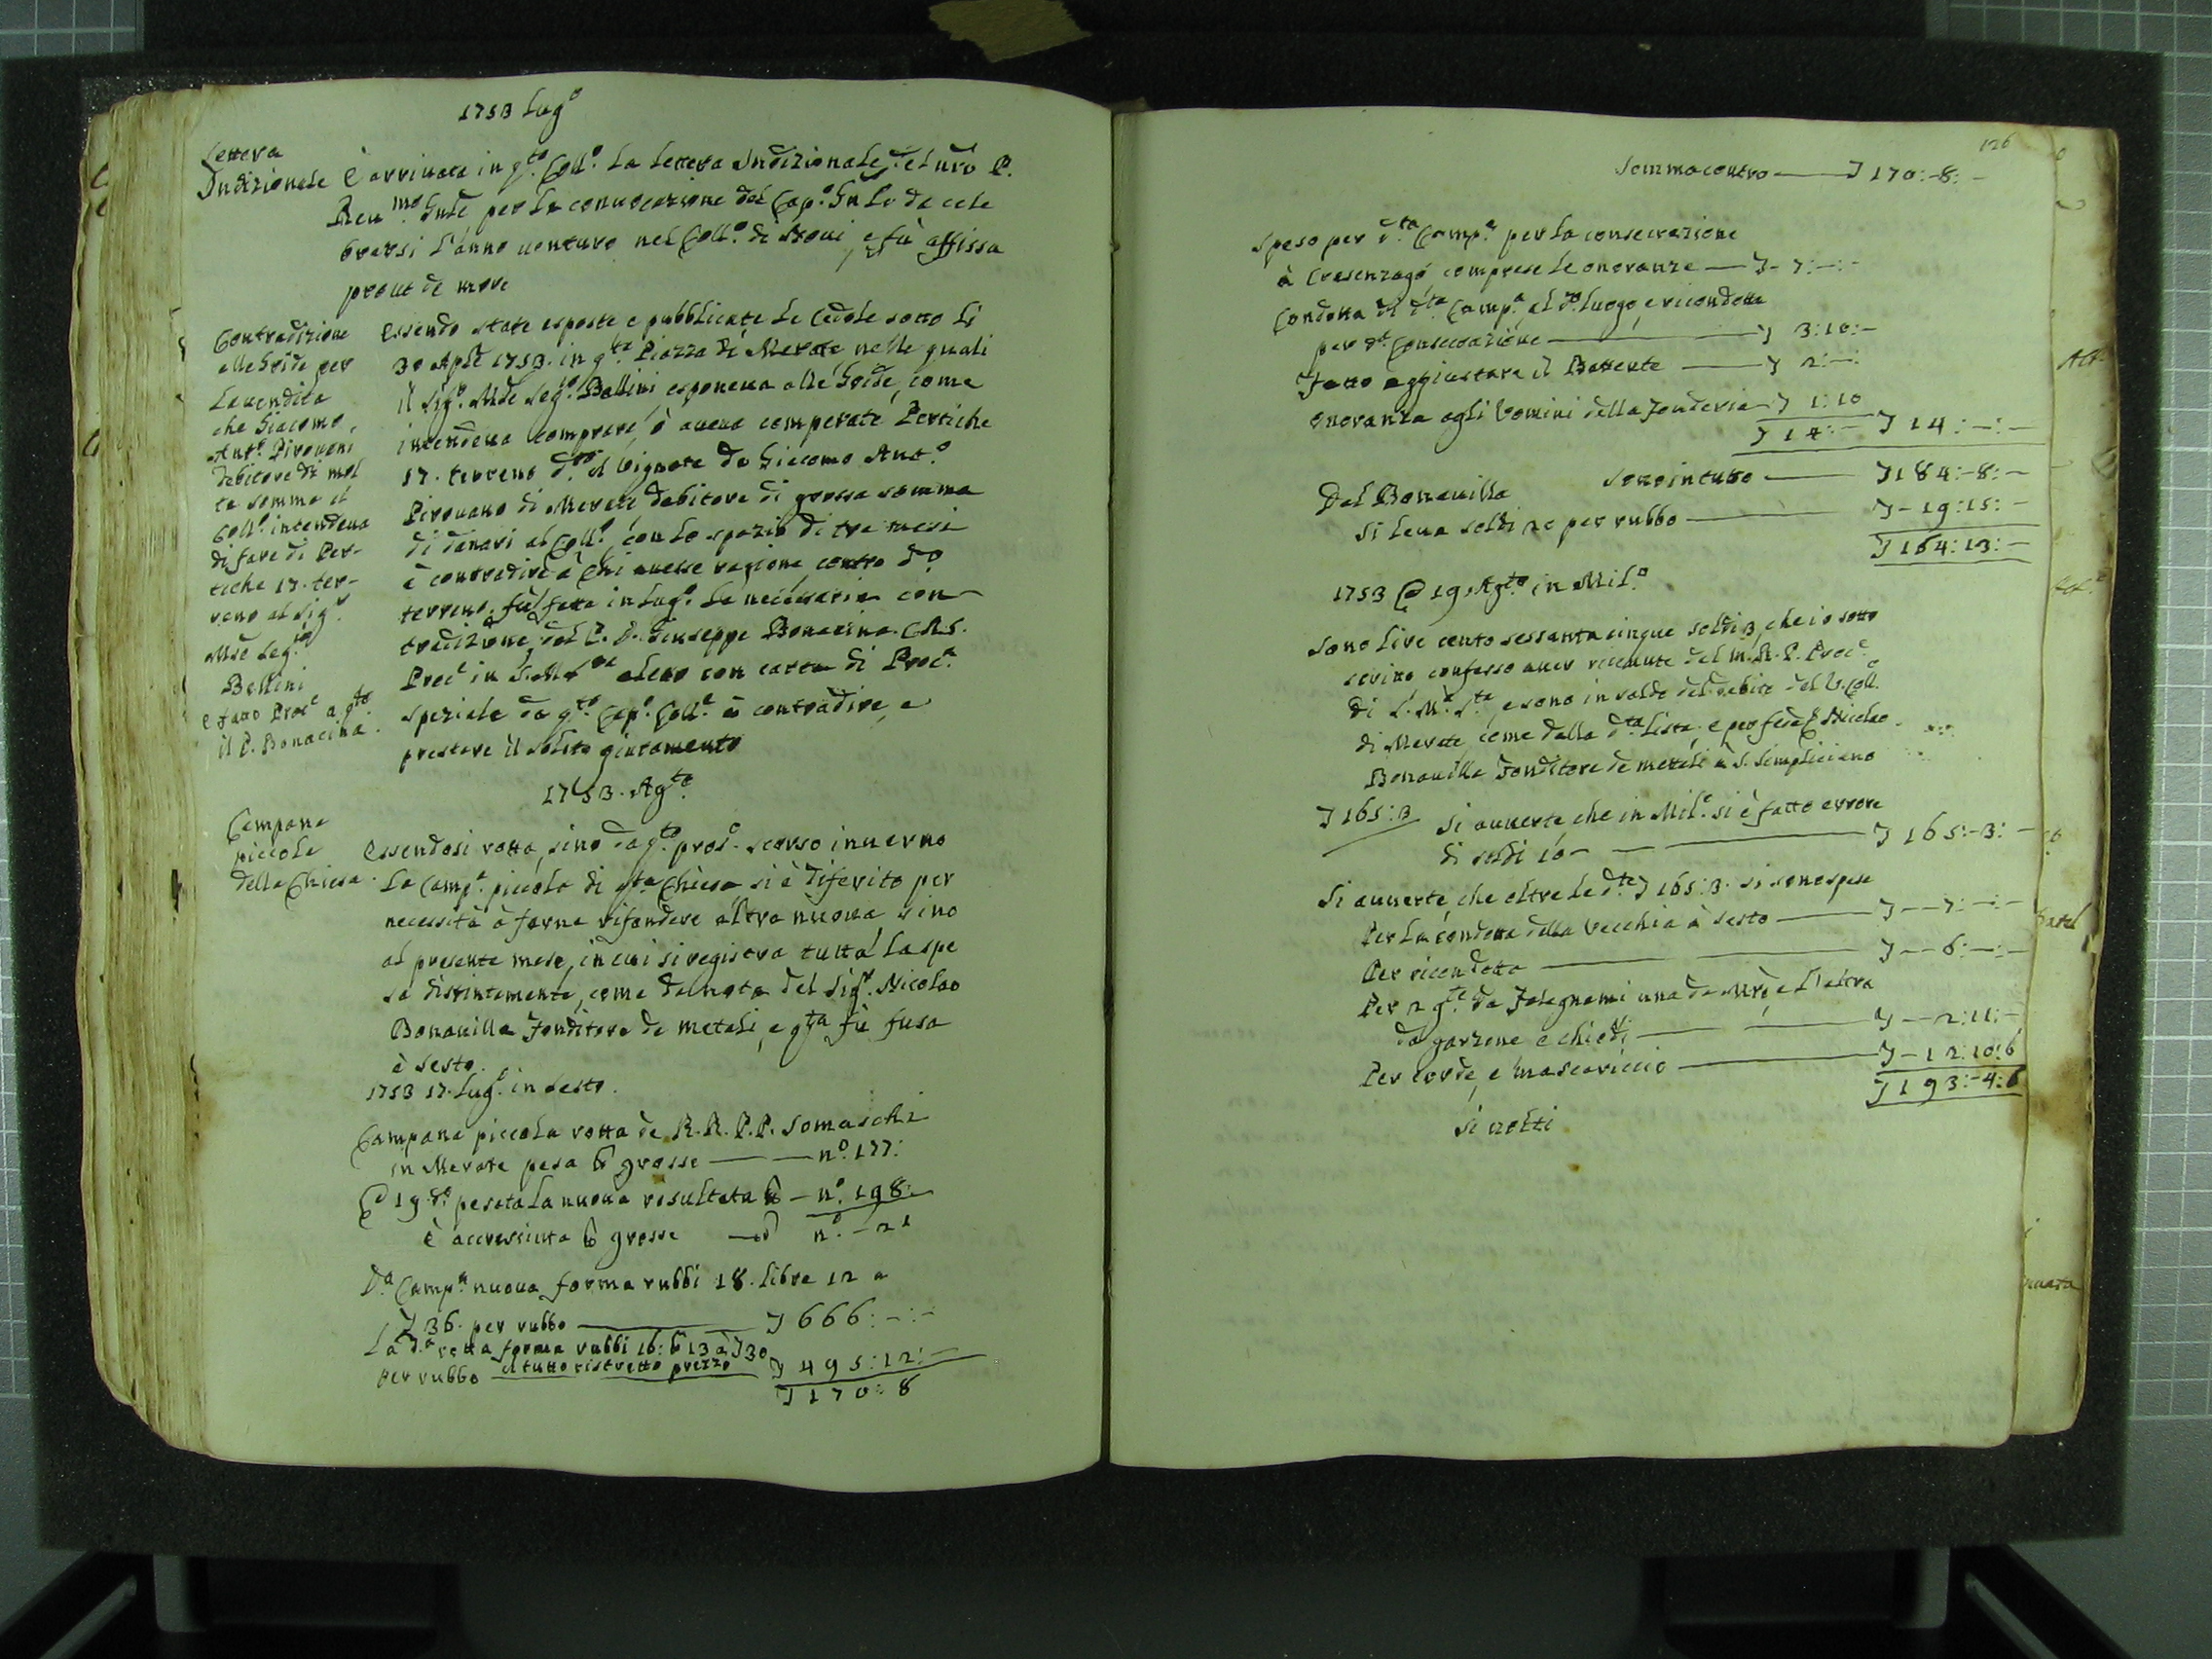 1753 Lug.o
Lettera
Indizionale
È arrivata in q.to Coll.o la Lettera Indizionale del nrō P.
Reu.mo Gnlē per la conuocazione del Cap.o Gnlē da cele
brarsi l'anno uenturo nel Coll.o di Noui, e fù affissa
prout de more
Contradizione
alle Gride per
la uendita
che Giacomo
Ant.o Pirouani
debitore di mol
ta somma al
Coll.o intendeua
di fare di Per-
tiche 17. ter-
reno al Sig.r
Mse Seg.rio
Bellini
e fatto Proc.e a q.to
il P. Bonacina.
Essendo state esposte, e pubblicate le Cedole sotto li
30 Aple 1753. in q.ta Piazza di Merate, nelle quali
il Sig.r Mse Seg.rio Bellini esponeua alle Gride, come
intendeua comprare, ò aueua comperate Pertiche
17. terreno d.to il Vignate da Giacomo Ant.o
Pirouano di Merate debitore di grossa somma
di danari al Coll.o con lo spazio di tre mesi
à contradire à chi auesse ragione contro d.o
terreno, fù fatta in Lug.o la necessaria con-
tradizione dal P. D. Giuseppe Bonacina C.R.S.
Proc.e in S. M. S.ta con carta di Proc.a
speziale da q.to Cap.o Coll.e à contradire, e
prestare il solito giuramento
1753. Ag.to
Campana
piccola
della Chiesa.
Essendosi rotta, sino da q.to pros.o scorso inuerno
la Camp.a piccola di q.ta Chiesa si è diferito per
necessità à farne rifondere altra nuoua sino
al presente mese, in cui si registra tutta la spe
sa distintamente, come da nota del Sig.r Nicolao
Bonauilla Fonditore de metali, e q.ta fù fusa
à Sesto.
1753 17. Lug.o in Sesto.
Campana piccola rotta de R.R. P.P. Somaschi
in Merate pesa lb grosse — — n.o 177:
E 19 d.o pesata la nuoua resultata lb — n.o 198:
È accresciuta lb grosse — n.o — 21
D.a Camp.a nuoua forma rubbi 18. libre 12 a
L 36. per rubbo — L 666:-:-
La d.a rotta forma rubbi 16: lb 13 à L 30
per rubbo al tutto ristretto prezzo L 495:12:-
L 170:8
126
Somma contro — L 170:-8:-
Speso per d.ta Camp.a per la consecrazione
à Cresenzago, comprese le onoranze — L- 7:-:-
Condotta di d.ta Camp.a al d.o luogo, e ricondotta
per d.a consecrazione — L 3:10:-
Fatto aggiustare il Battente — L 2:-:
Onoranza agli Uomini della Fonderia L 1:10
L 14:- L 14:-:-
Sono in tutto — L 184:-8:-
Dal Bonauilla
si leua soldi 20 per rubbo — L- 19:15:-
L 164:13:-
1753 E 19 Ag.to in Mil.o
Sono lire cento sessanta cinque soldi 3, che io sotto
scritto confesso auer riceuute dal M.R.P. Proc.e
di S. M.a S.ta, e sono in saldo del debito del V. Coll.o
di Merate, come dalla d.ta Lista, e per fede Nicolao
Bonauilla Fonditore de metali à S. Simpliciano
L 165:3
Si auuerte, che in Mil.o si è fatto errore
di soldi 10 — L 165:-3:-
Si auuerte, che oltre le d.te L 165:3. si sono spese
Per la condotta della Vecchia à Sesto — L--7:-:-
Per ricondotta — L--6:-:-
Per 2 g.te da Falegnami una da Mrō, e l'altra
da garzone e chiodi — L--2:11:-
Per corde, e mascariccio — L-12:10:6
L 193:-4:6
Si uolti